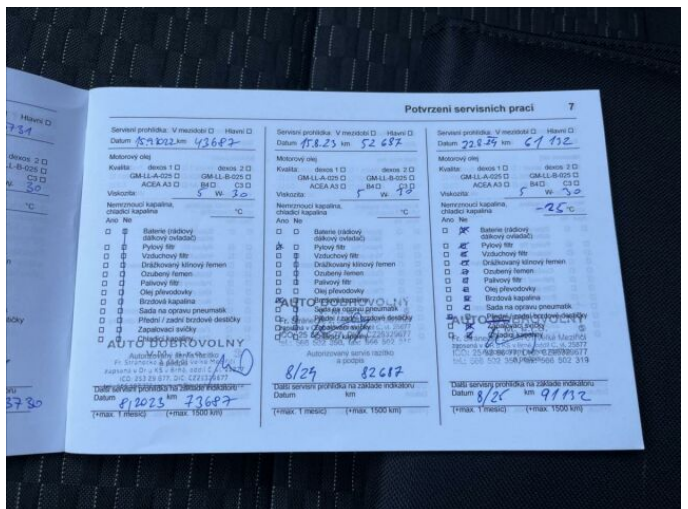 Potvrzení servisních prací 7
Hlavní
731
dexos 2
LL-B-025
C3
W- 30
°C
3730
Servisní prohlídka: V mezidobí Hlavní
Datum 15.9.2022 km 43687
Motorový olej
Kvalita: dexos 1 dexos 2
GM-LL-A-025 GM-LL-B-025
ACEA A3 B4 C3
Viskozita: 5 W- 30
Nemrznoucí kapalina,
chladicí kapalina °C
Ano Ne
Baterie (rádiový
dálkový ovladač)
Pylový filtr
Vzduchový filtr
Drážkovaný klínový řemen
Ozubený řemen
Palivový filtr
Olej převodovky
Brzdová kapalina
Sada na opravu pneumatik
Přední / zadní brzdové destičky
Zapalovací svíčky
Chladicí kapalina
AUTO DOBROVOLNÝ
Další servisní prohlídka na základě indikátoru
Datum 8/2023 km 73687
(+max. 1 měsíc) (+max. 1500 km)
Servisní prohlídka: V mezidobí Hlavní
Datum 15.8.23 km 52 687
Motorový olej
Kvalita: dexos 1 dexos 2
GM-LL-A-025 GM-LL-B-025
ACEA A3 B4 C3
Viskozita: 5 W- 30
Nemrznoucí kapalina,
chladicí kapalina °C
Ano Ne
Baterie (rádiový
dálkový ovladač)
Pylový filtr
Vzduchový filtr
Drážkovaný klínový řemen
Ozubený řemen
Palivový filtr
Olej převodovky
Brzdová kapalina
AUTO DOBROVOLNÝ
Sada na opravu pneumatik
Přední / zadní brzdové destičky
Zapalovací svíčky
Chladicí kapalina
Autorizovaný servis razítko
a podpis
8/24 82687
Další servisní prohlídka na základě indikátoru
Datum km
(+max. 1 měsíc) (+max. 1500 km)
Servisní prohlídka: V mezidobí Hlavní
Datum 22.8.24 km 61 132
Motorový olej
Kvalita: dexos 1 dexos 2
GM-LL-A-025 GM-LL-B-025
ACEA A3 B4 C3
Viskozita: 5 W- 30
Nemrznoucí kapalina,
chladicí kapalina -25 °C
Ano Ne
Baterie (rádiový
dálkový ovladač)
Pylový filtr
Vzduchový filtr
Drážkovaný klínový řemen
Ozubený řemen
Palivový filtr
Olej převodovky
Brzdová kapalina
Sada na opravu pneumatik
Přední / zadní brzdové destičky
AUTO DOBROVOLNÝ
Zapalovací svíčky
Další servisní prohlídka na základě indikátoru
Datum 8/25 km 91132
(+max. 1 měsíc) (+max. 1500 km)